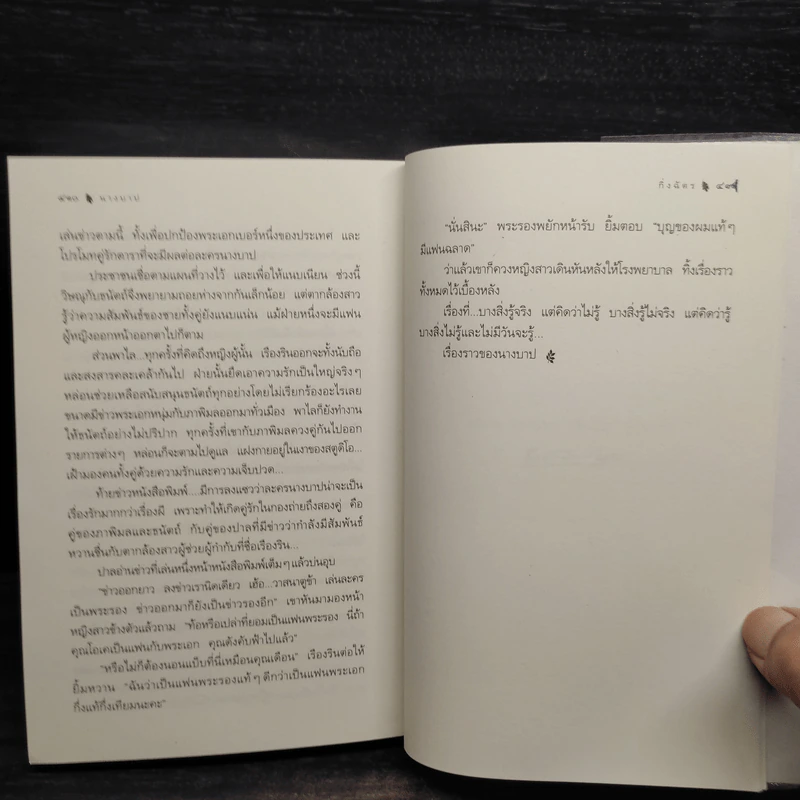 ๔๒๐ นางบาป
เล่นข่าวตามนี้ ทั้งเพื่อปกป้องพระเอกเบอร์หนึ่งของประเทศ และ
โปรโมทคู่รักดาราที่จะมีผลต่อละครนางบาป
ประชาชนเชื่อตามแผนที่วางไว้ และเพื่อให้แนบเนียน ช่วงนี้
วิษณุกับธนัตถ์จึงพยายามถอยห่างจากกันเล็กน้อย แต่ตากล้องสาว
รู้ว่าความสัมพันธ์ของชายทั้งคู่ยังแนบแน่น แม้ฝ่ายหนึ่งจะมีแฟน
ผู้หญิงออกหน้าออกตาไปก็ตาม
ส่วนพาไล...ทุกครั้งที่คิดถึงหญิงผู้นั้น เรืองรินออกจะทั้งนับถือ
และสงสารคละเคล้ากันไป ฝ่ายนั้นยึดเอาความรักเป็นใหญ่จริงๆ
หล่อนช่วยเหลือสนับสนุนธนัตถ์ทุกอย่างโดยไม่เรียกร้องอะไรเลย
ขณะมีข่าวพระเอกหนุ่มกับภาพิมลออกมาทั่วเมือง พาไลก็ยังทำงาน
ให้ธนัตถ์อย่างไม่ปริปาก ทุกครั้งที่เขากับภาพิมลควงคู่กันไปออก
รายการต่างๆ หล่อนก็จะตามไปดูแล แฝงกายอยู่ในเงาของสตูดิโอ...
เฝ้ามองคนทั้งคู่ด้วยความรักและความเจ็บปวด...
ท้ายข่าวหนังสือพิมพ์....มีการลงแซวว่าละครนางบาปน่าจะเป็น
เรื่องรักมากกว่าเรื่องผี เพราะทำให้เกิดคู่รักในกองถ่ายถึงสองคู่ คือ
คู่ของภาพิมลและธนัตถ์ กับคู่ของปาลที่มีข่าวว่ากำลังมีสัมพันธ์
หวานชื่นกับตากล้องสาวผู้ช่วยผู้กำกับที่ชื่อเรืองริน...
ปาลอ่านข่าวที่เล่นหนึ่งหน้าหนังสือพิมพ์เต็มๆ แล้วบ่นอุบ
“ข่าวออกยาว ลงข่าวเรานิดเดียว เฮ้อ...วาสนาตูข้า เล่นละคร
เป็นพระรอง ข่าวออกมาก็ยังเป็นข่าวรองอีก” เขาหันมามองหน้า
หญิงสาวข้างตัวแล้วถาม “ท้อหรือเปล่าที่ยอมเป็นแฟนพระรอง นี่ถ้า
คุณโอเคเป็นแฟนกับพระเอก คุณดังคับฟ้าไปแล้ว”
“หรือไม่ก็ต้องนอนแบ็บที่นี่เหมือนคุณเดือน” เรืองรินต่อให้
ยิ้มหวาน “ฉันว่าเป็นแฟนพระรองแท้ๆ ดีกว่าเป็นแฟนพระเอก
กึ่งแท้กึ่งเทียมนะคะ”
กิ่งฉัตร
“นั่นสินะ” พระรองพยักหน้ารับ ยิ้มตอบ “บุญของผมแท้ๆ
มีแฟนฉลาด”
ว่าแล้วเขาก็ควงหญิงสาวเดินหันหลังให้โรงพยาบาล ทิ้งเรื่องราว
ทั้งหมดไว้เบื้องหลัง
เรื่องที่...บางสิ่งรู้จริง แต่คิดว่าไม่รู้ บางสิ่งรู้ไม่จริง แต่คิดว่ารู้
บางสิ่งไม่รู้และไม่มีวันจะรู้...
เรื่องราวของนางบาป